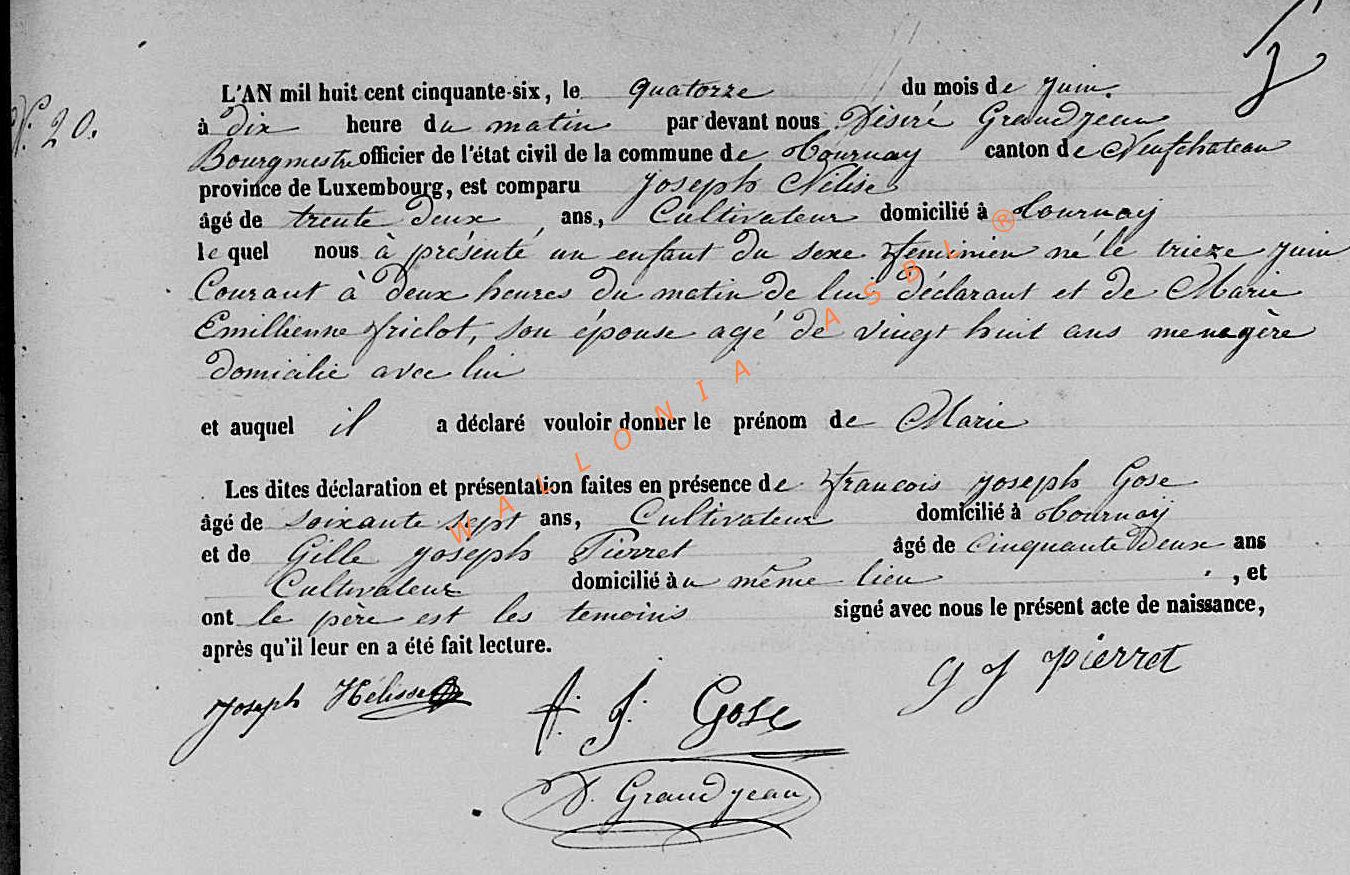 N°. 20.
L'AN mil huit cent cinquante-six, le quatorze du mois de juin.
à dix heure du matin par devant nous Désiré Grandjean
Bourgmestre officier de l'état civil de la commune de Tournay canton de Neufchateau
province de Luxembourg, est comparu Joseph Nélise
âgé de trente deux ans, Cultivateur domicilié à Tournay
le quel nous à présenté un enfant du sexe feminien né le trieze juin
Courant à deux heures du matin de lui déclarant et de Marie
Emillienne friclot, son épouse agé de vingt huit ans menagère
domicilié avec lui
et auquel il a déclaré vouloir donner le prénom de Marie
Les dites déclaration et présentation faites en présence de francois joseph Gose
âgé de soixante sept ans, Cultivateur domicilié à Tournay
et de Gille joseph Pierret âgé de cinquante deux ans
Cultivateur domicilié au même lieu , et
ont le père est les temoins signé avec nous le présent acte de naissance,
après qu'il leur en a été fait lecture.
Joseph Hélisse F. J. Gose G J pierret
D. Grandjean
WALLONIA ASBL ®